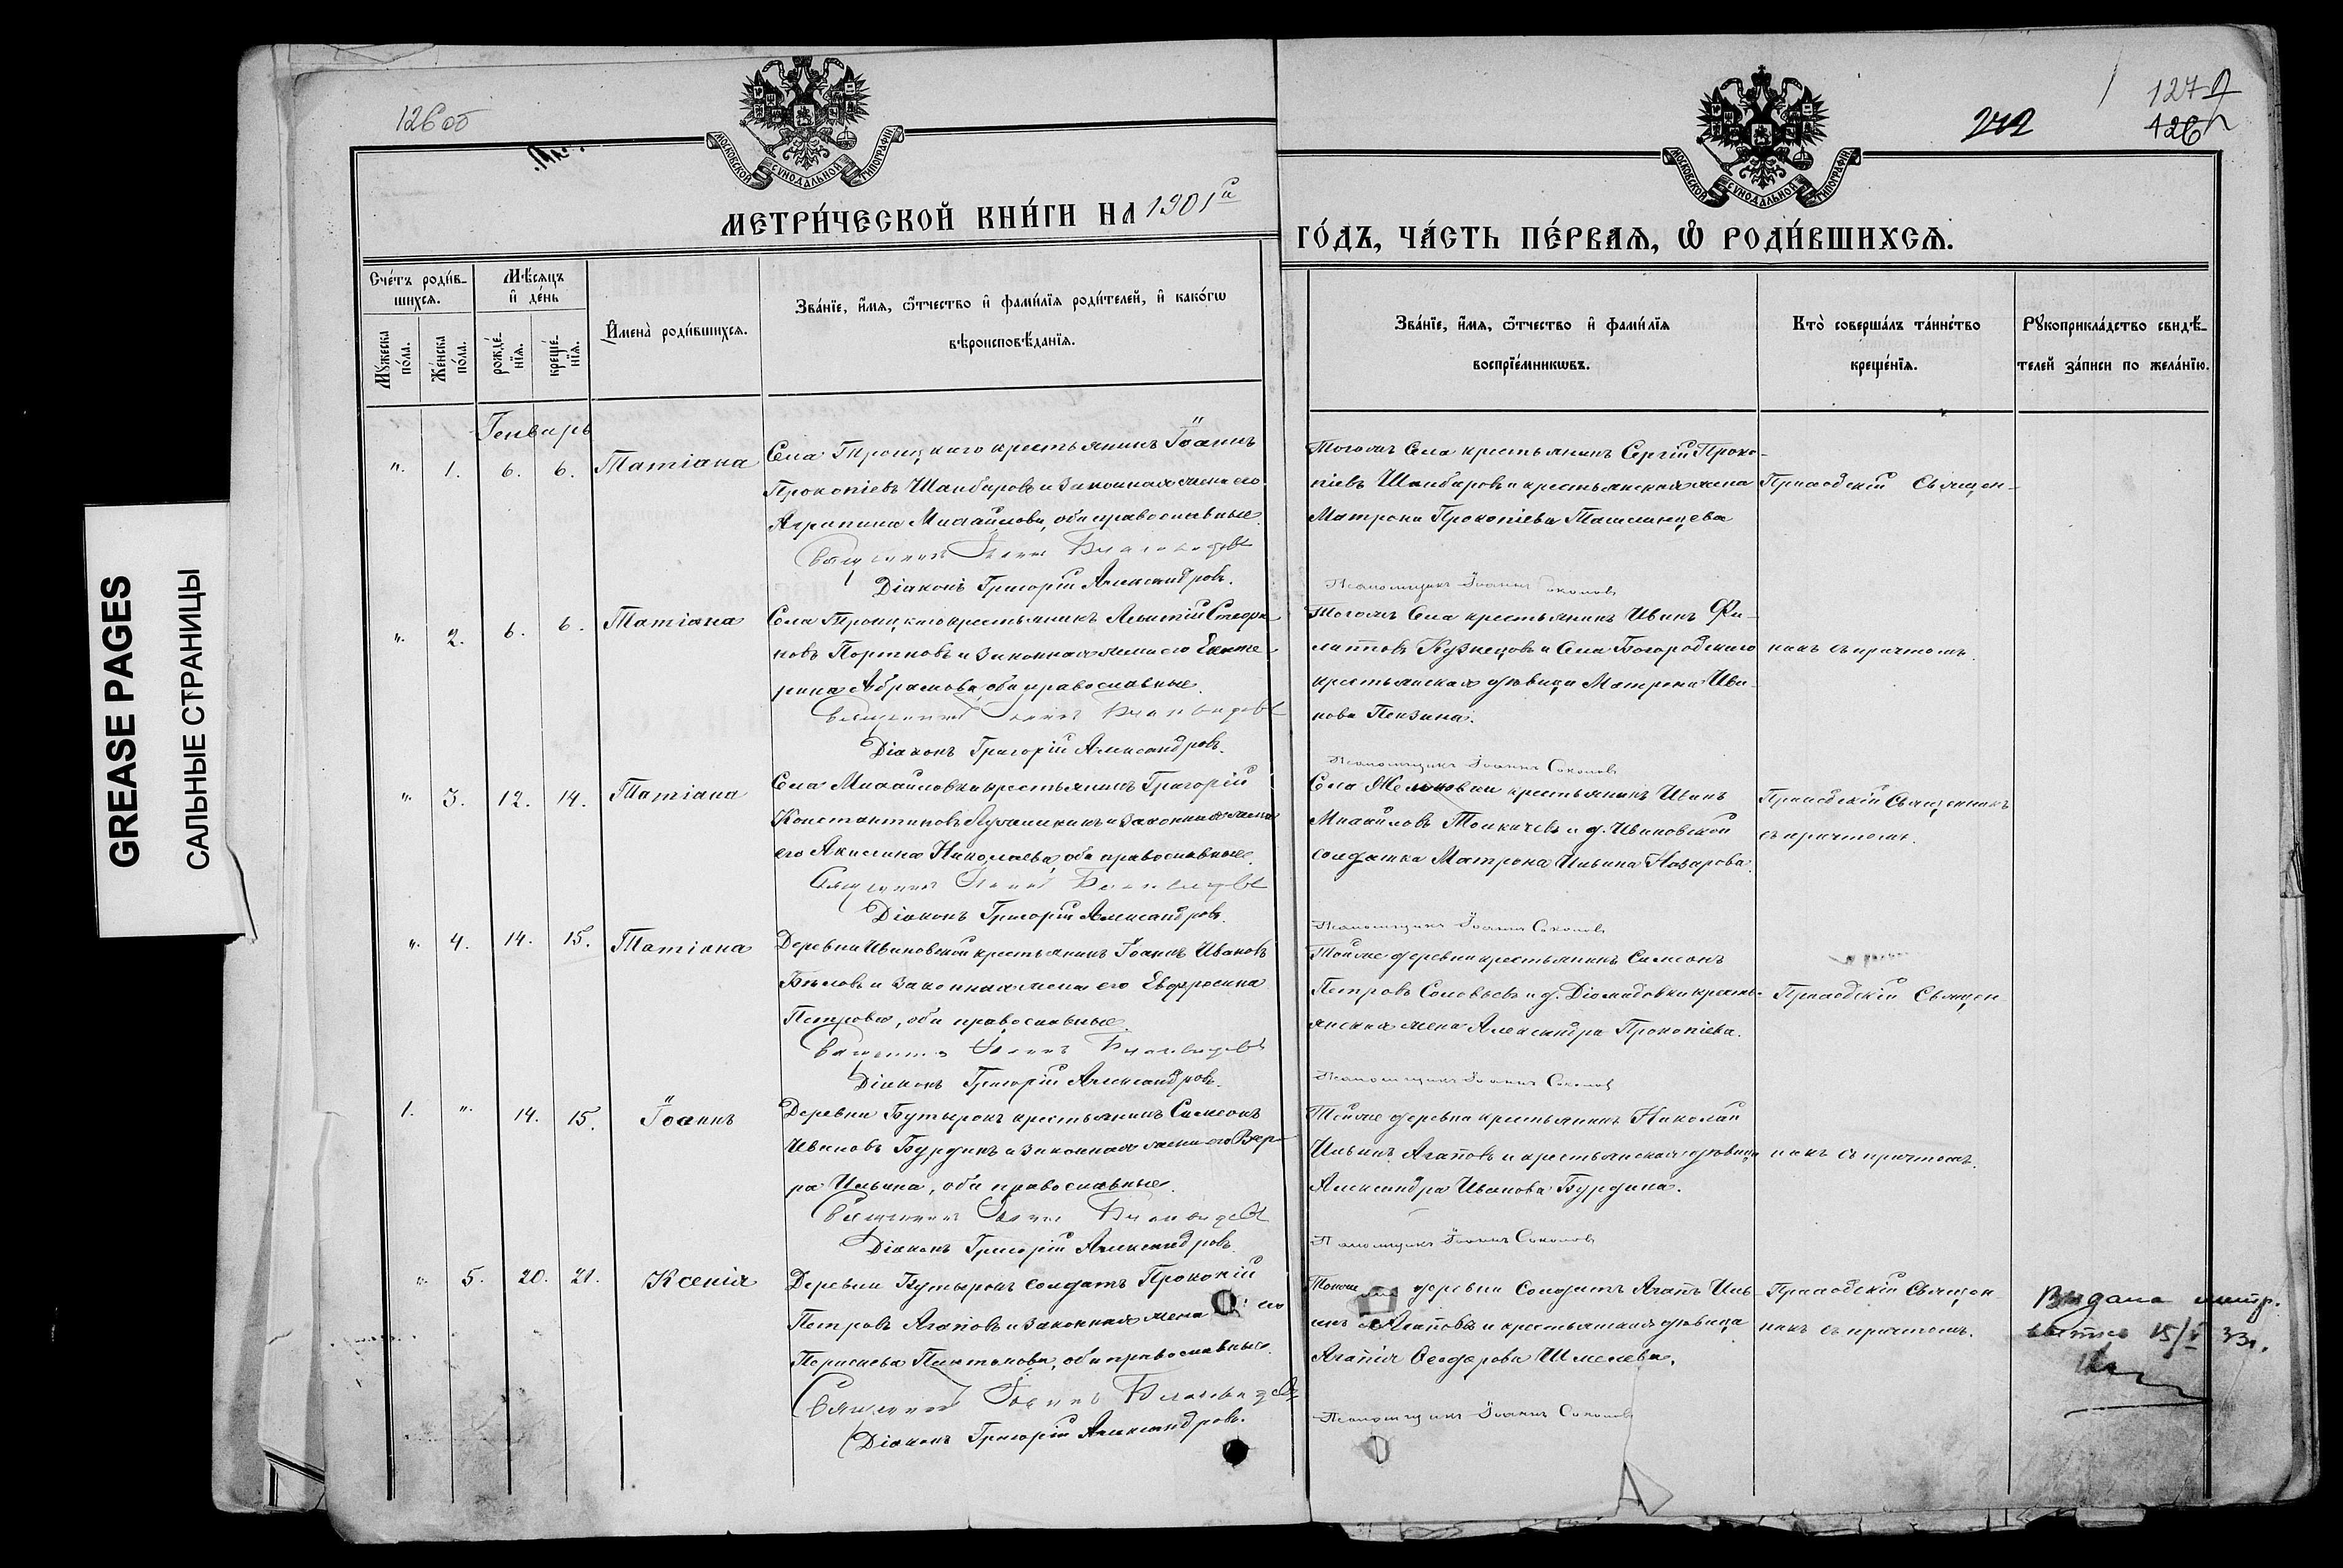 126 об
127
126
242
МОСКОВСКОЙ СѴНОДАЛЬНОЙ ТИПОГРАФІИ
МОСКОВСКОЙ СѴНОДАЛЬНОЙ ТИПОГРАФІИ
МЕТРИ́ЧЕСКОЙ КНИ́ГИ НА 1901й
ГО́ДЪ, ЧА́СТЬ ПЕ́РВАЯ, Ѽ РОДИ́ВШИХСЯ.
Сче́тъ роди́в-
шихся.
Мѣ́сяцъ
и҆ де́нь
Мꙋ́жеска
по́ла.
Же́нска
по́ла.
рожде́-
нїя.
креще́-
нїя.
И҆мена̀ роди́вшихся.
Зва́нїе, и҆́мя, ѻ҆́тчество и҆ фами́лїя роди́телей, и҆ како́гѡ
вѣроисповѣ́данїя.
Зва́нїе, и҆́мя, ѻ҆́тчество и҆ фами́лїя
воспрїе́мникѡвъ.
Кто̀ соверша́лъ та́инство
креще́нїя.
Рꙋкоприкла́дство свидѣ́-
телей за́писи по жела́нїю.
Генварь
". 1. 6. 6. Татіана
Села Троицкаго крестьянинъ Іоаннъ
Прокопіевъ Шанбаровъ и законная жена его
Агрипина Михайлова, оба православные.
Священникъ Іоаннъ
Діаконъ Григорій Александровъ.
Тогожъ Села крестьянинъ Сергій Проко-
піевъ Шанбаровъ и крестьянская жена
Матрона Прокопіева Ташлинцева
Псаломщикъ Іоаннъ Соколовъ
Приходскій Священ-
". 2. 6. 6. Татіана
Села Троицкаго крестьянинъ Стефа-
новъ Портновъ и законная жена его Екате-
рина Абрамова, оба православные.
Священникъ Іоаннъ
Діаконъ Григорій Александровъ.
Тогожъ Села крестьянинъ Иванъ Фи-
липповъ Кузнецовъ и Села Богородскаго
крестьянская дѣвица Матрона Ива-
нова Пензина.
Псаломщикъ Іоаннъ Соколовъ
никъ съ причтомъ.
". 3. 12. 14. Татіана
Села Михайловки крестьянинъ Григорій
Константиновъ и законная жена
его Акилина Николаева, оба православные.
Священникъ Іоаннъ
Діаконъ Григорій Александровъ.
Села крестьянинъ Иванъ
Михайловъ и д. Ивановской
солдатка Матрона Ильина Назарова.
Псаломщикъ Іоаннъ Соколовъ
Приходскій Священникъ
съ причтомъ.
". 4. 14. 15. Татіана
Деревни Ивановской крестьянинъ Іоаннъ Ивановъ
Бѣловъ и законная жена его Евфросина
Петрова, оба православные.
Священникъ Іоаннъ
Діаконъ Григорій Александровъ.
Тойже деревни крестьянинъ Симеонъ
Петровъ Соловьевъ и д. Діомидовки кресть-
янская жена Александра Прокопіева.
Псаломщикъ Іоаннъ Соколовъ
Приходскій Священ-
1. ". 14. 15. Іоаннъ
Деревни Бутырокъ крестьянинъ Симеонъ
Ивановъ Бурдинъ и законная жена его Вар-
ра Ильина, оба православные.
Священникъ Іоаннъ
Діаконъ Григорій Александровъ.
Тойже деревни крестьянинъ Николай
Ильинъ Агаповъ и крестьянская дѣвица
Александра Иванова Бурдина.
Псаломщикъ Іоаннъ Соколовъ
никъ съ причтомъ.
". 5. 20. 21. Ксенія
Деревни Бутырокъ солдатъ Прокопій
Петровъ Агаповъ и законная жена его
Платонова, оба православные.
Священникъ Іоаннъ
Діаконъ Григорій Александровъ.
деревни Солдатъ Агапъ Иль-
инъ Агаповъ и крестьянская дѣвица
Агапія Ѳеодорова Шмелева.
Псаломщикъ Іоаннъ Соколовъ
Приходскій Священ-
никъ съ причтомъ.
Выдана метр.
15/I 33г.
GREASE PAGES
САЛЬНЫЕ СТРАНИЦЫ